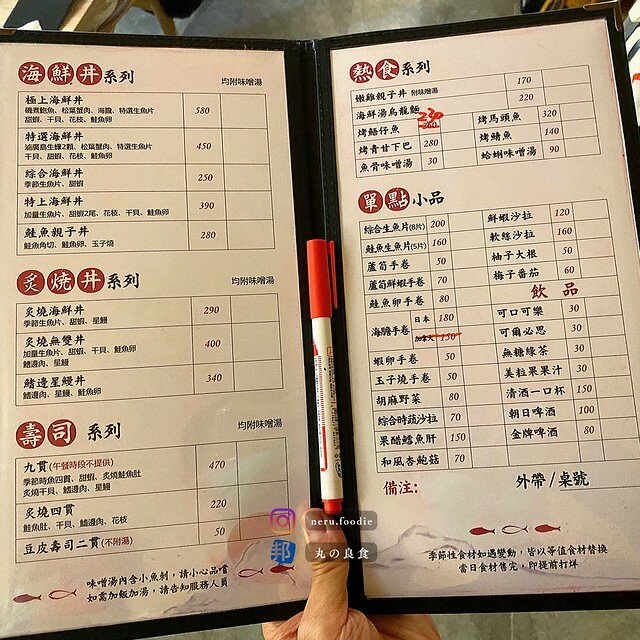 海鮮丼系列 均附味噌湯
極上海鮮丼 580
磯煮鮑魚、松葉蟹肉、海膽、特選生魚片
甜蝦、干貝、花枝、鮭魚卵
特選海鮮丼 450
滷廣島生蠔2顆、松葉蟹肉、特選生魚片
干貝、甜蝦、花枝、鮭魚卵
綜合海鮮丼 250
季節生魚片、甜蝦
特上海鮮丼 390
加量生魚片、甜蝦2尾、花枝、干貝、鮭魚卵
鮭魚親子丼 280
鮭魚角切、鮭魚卵、玉子燒
炙燒丼系列 均附味噌湯
炙燒海鮮丼 290
季節生魚片、甜蝦、星鰻
炙燒無雙丼 400
加量生魚片、甜蝦、干貝、鮭魚卵
鰭邊肉、星鰻
鰭邊星鰻丼 340
鰭邊肉、星鰻、鮭魚卵
壽司 系列 均附味噌湯
九貫(午餐時段不提供) 470
季節時魚四貫、甜蝦、炙燒鮭魚肚
炙燒干貝、鰭邊肉、星鰻
炙燒四貫 220
鮭魚肚、干貝、鰭邊肉、花枝
豆皮壽司二貫(不附湯) 50
味噌湯內含小魚刺，請小心品嚐
如需加飯加湯，請告知服務人員
熱食系列
嫩雞親子丼 附味噌湯 170
海鮮湯烏龍麵 220
烤鱔仔魚 230 260 烤馬頭魚 320
烤青甘下巴 280 烤鯖魚 140
魚骨味噌湯 30 蛤蜊味噌湯 90
單點小品
綜合生魚片(8片) 200 鮮蝦沙拉 120
鮭魚生魚片(5片) 160 軟絲沙拉 160
蘆筍手卷 50 柚子大根 50
蘆筍鮮蝦手卷 70 梅子番茄 60
鮭魚卵手卷 80 飲 品
海膽手卷 日本 180 可口可樂 30
加拿大 150 可爾必思 30
蝦卵手卷 50 無糖綠茶 30
玉子燒手卷 50 美粒果果汁 30
胡麻野菜 80 清酒一口杯 150
綜合時蔬沙拉 70 朝日啤酒 100
果醋鱈魚肝 150 金牌啤酒 80
和風杏鮑菇 70
備注: 外帶/桌號
季節性食材如遇變動，皆以等值食材替換
當日食材售完，即提前打烊
neru.foodie
邦 丸の良食